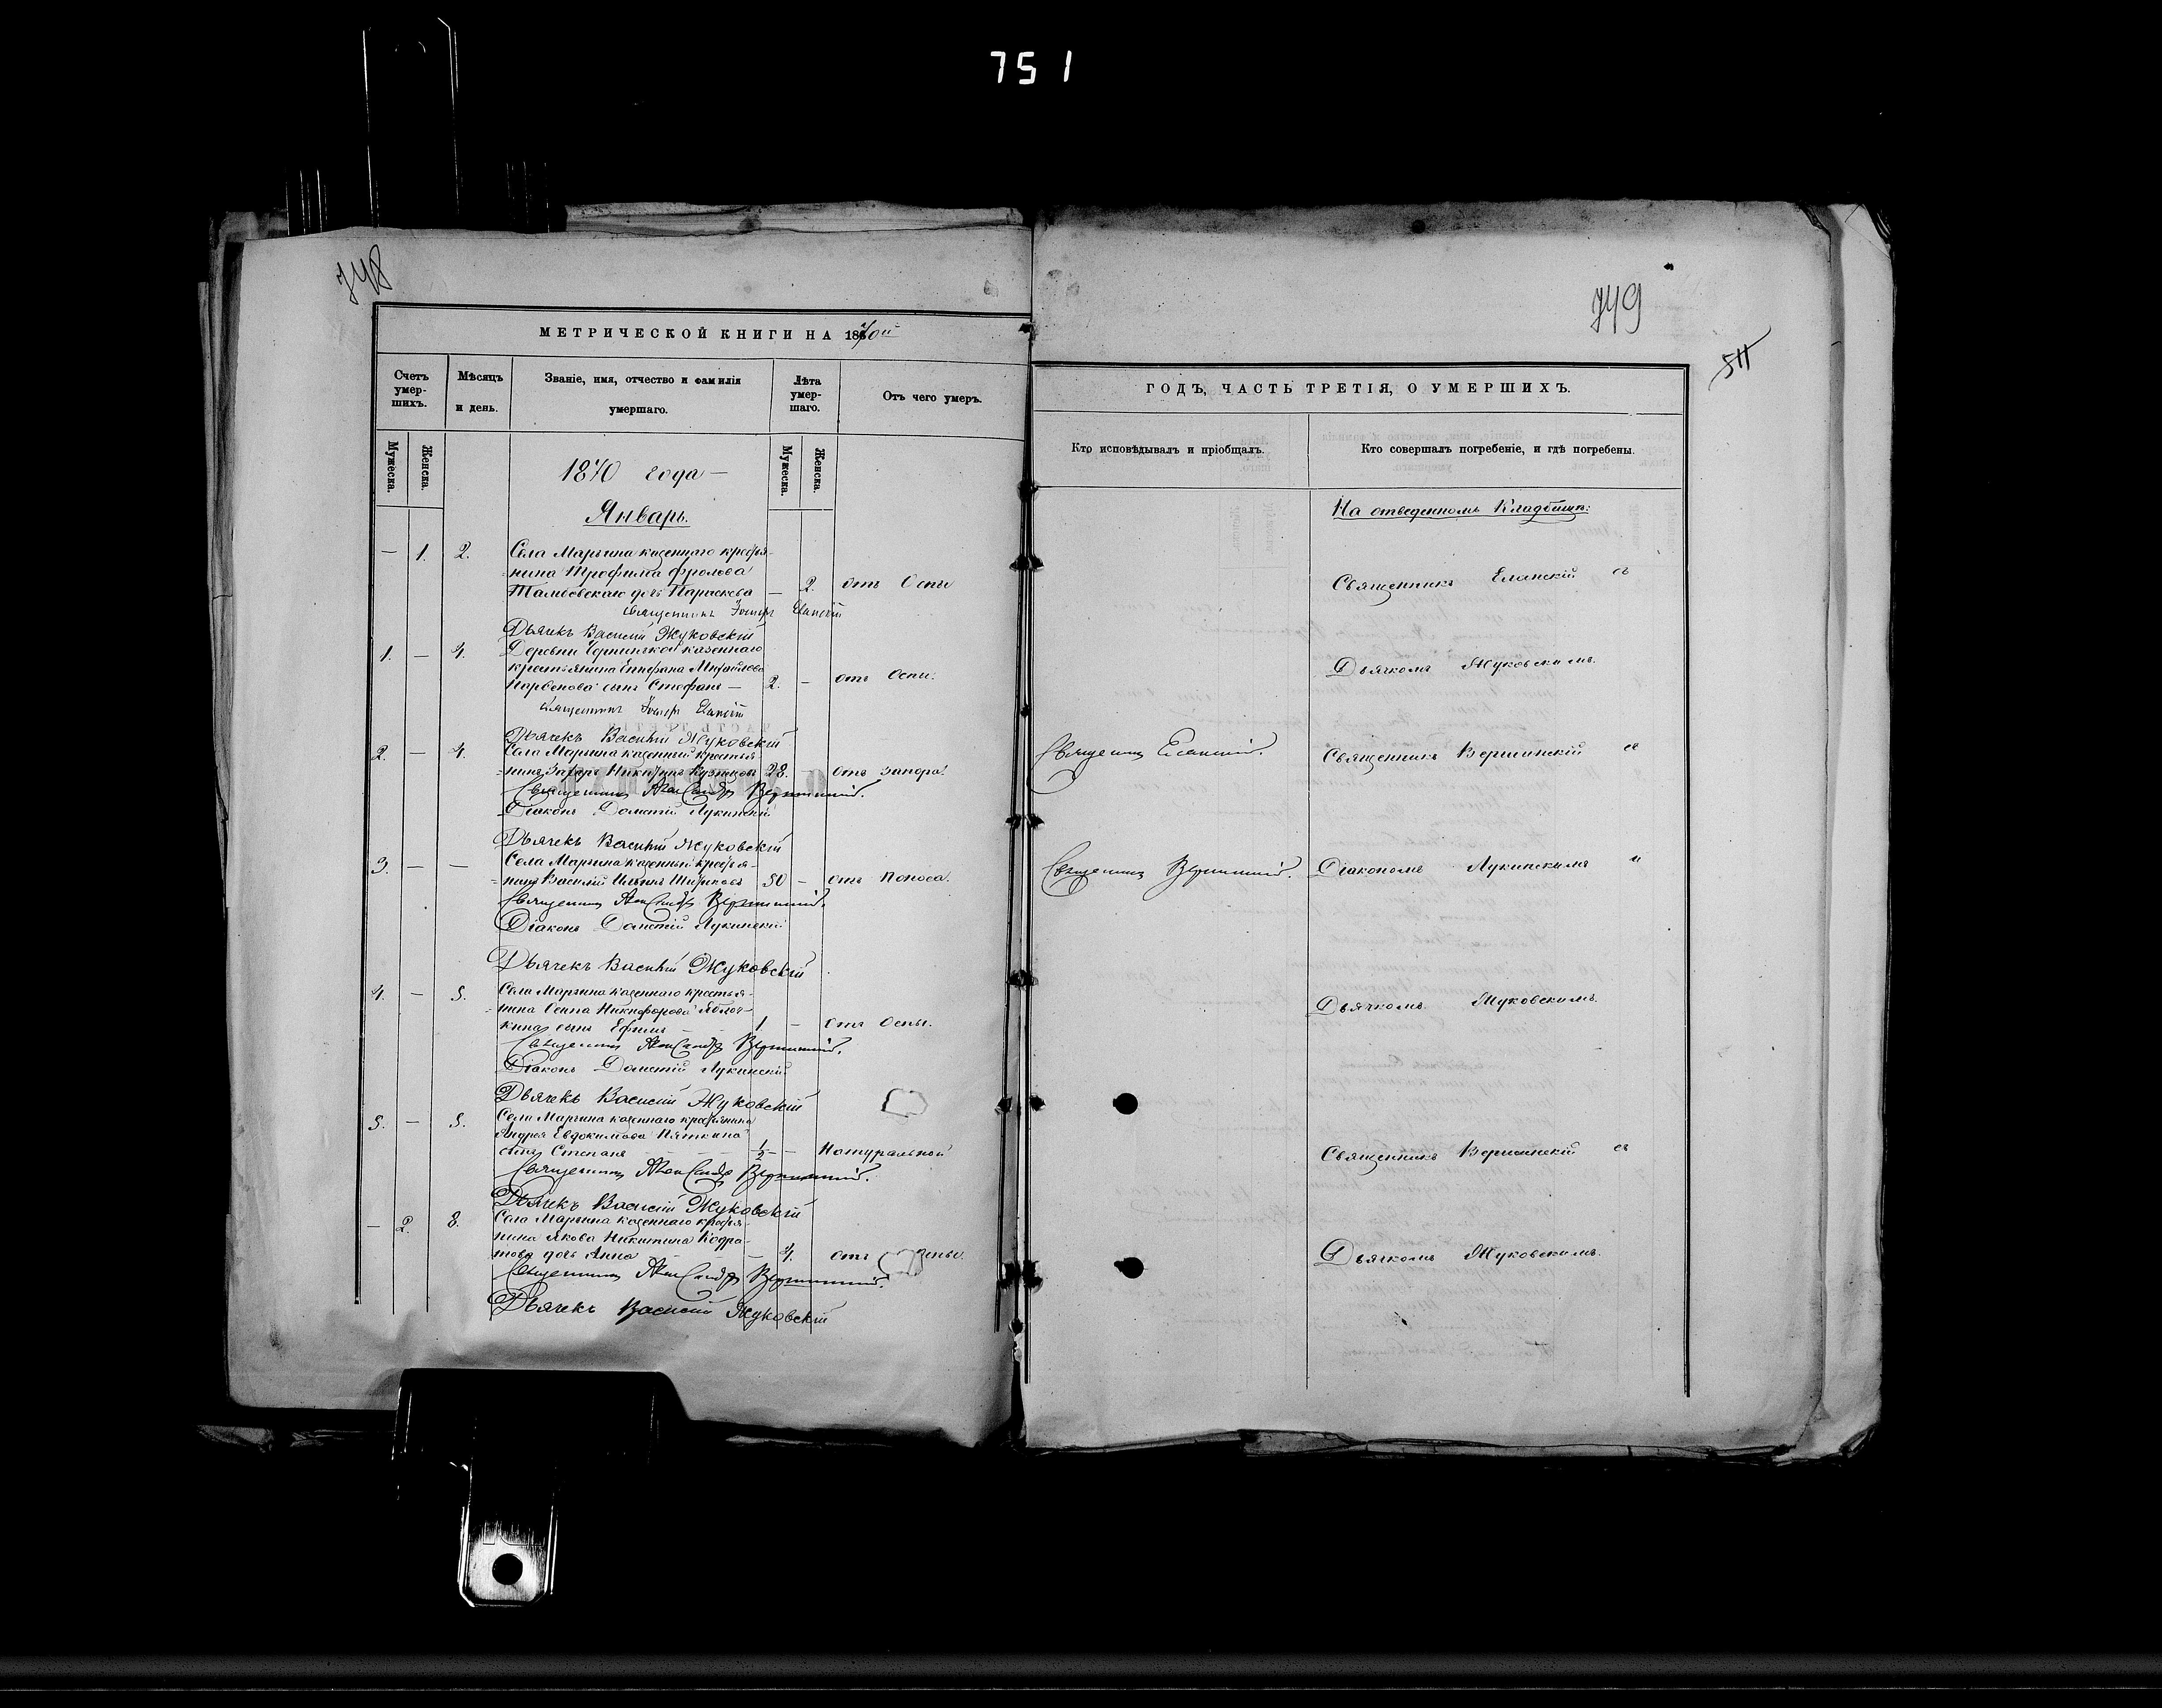 751
748
МЕТРИЧЕСКОЙ КНИГИ НА 1870й
Счетъ умер-шихъ.
Мѣсяцъ и день.
Званіе, имя, отчество и фамилія умершаго.
Лѣта умер-шаго.
Отъ чего умеръ.
Мужеска.
Женска.
Мужеска.
Женска.
1870 года —
Январь.
— 1. 2. Села Марьина казеннаго крестья-
нина Трофима Фролова
Тамбовскаго дочь Параскева — 2. отъ Оспы
Священникъ Еланскій
Дьячекъ Василій Жуковскій
1. — 4. Деревни казеннаго
крестьянина Епифана Михайлова
Парѳенова сынъ Стефанъ — 2. — отъ Оспы.
Священникъ Еланскій
Дьячекъ Василій Жуковскій
2. — 4. Села Марьина казенный крестья-
нинъ Захаръ Никитинъ 28. отъ запора.
Священникъ Александръ Вершинскій.
Діаконъ Лукинскій
Дьячекъ Василій Жуковскій
3. — — Села Марьина казенный крестья-
нинъ Василій Ильинъ 50 — отъ поноса.
Священникъ Александръ Вершинскій.
Діаконъ Лукинскій
Дьячекъ Василій Жуковскій
4. — 5. Села Марьина казеннаго крестья-
нина Осипа Никифорова Яблоч-
кина сынъ Ефимъ 1 — отъ Оспы.
Священникъ Александръ Вершинскій.
Діаконъ Лукинскій
Дьячекъ Василій Жуковскій
5. — 5. Села Марьина казеннаго крестьянина
Андрея Евдокимова Пяткина
сынъ Степанъ 1/2 — Натуральной
Священникъ Александръ Вершинскій.
Дьячекъ Василій Жуковскій
— 2. 8. Села Марьина казеннаго крестья-
нина Якова Никитина Кодра-
това дочь Анна — отъ
Священникъ Александръ Вершинскій.
Дьячекъ Василій Жуковскій
749
511
ГОДЪ, ЧАСТЬ ТРЕТІЯ, О УМЕРШИХЪ.
Кто исповѣдывалъ и пріобщалъ.
Кто совершалъ погребеніе, и гдѣ погребены.
На отведенномъ Кладбищѣ:
Священникъ Еланскій съ
Дьячкомъ Жуковскимъ.
Священникъ Еланскій.
Священникъ Вершинскій съ
Священникъ Вершинскій.
Діакономъ Лукинскимъ и
Дьячкомъ Жуковскимъ.
Священникъ Вершинскій съ
Дьячкомъ Жуковскимъ.